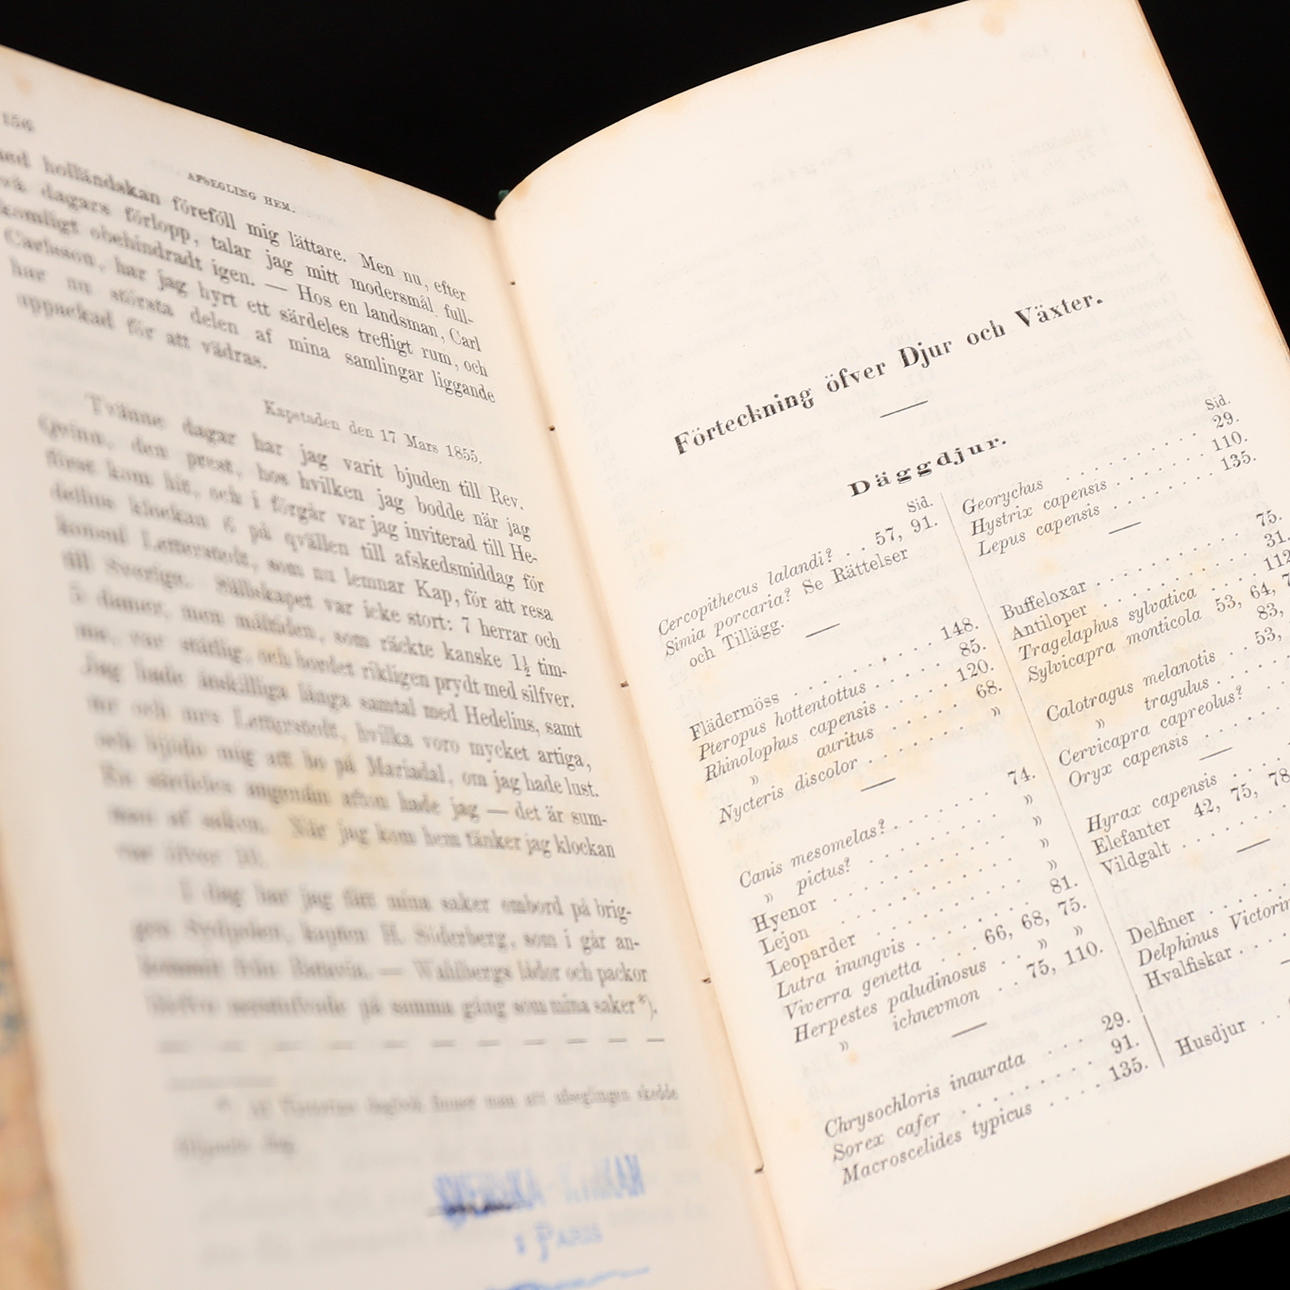 156
AFSEGLING HEM.
med holländskan föreföll mig lättare. Men nu, efter
två dagars förlopp, talar jag mitt modersmål full-
komligt obehindradt igen. — Hos en landsman, Carl
Carlsson, har jag hyrt ett särdeles trefligt rum, och
har nu största delen af mina samlingar liggande
uppackad för att vädras.
Kapstaden den 17 Mars 1855.
Tvänne dagar har jag varit bjuden till Rev.
Quinn, den prest, hos hvilken jag bodde när jag
först kom hit, och i förgår var jag inviterad till He-
delius klockan 6 på qvällen till afskedsmiddag för
konsul Letterstedt, som nu lemnar Kap, för att resa
till Sverige. Sällskapet var icke stort: 7 herrar och
5 damer, men måltiden, som räckte kanske 1½ tim-
me, var ståtlig, och bordet rikligen prydt med silfver.
Jag hade åtskilliga långa samtal med Hedelius, samt
mr och mrs Letterstedt, hvilka voro mycket artiga,
och bjödo mig att bo på Mariadal, om jag hade lust.
En särdeles angenäm afton hade jag — det är sum-
man af saken. När jag kom hem tänker jag klockan
var öfver 10.
I dag har jag fått mina saker ombord på brig-
gen Sydpolen, kapten H. Söderberg, som i går an-
kommit från Batavia. — Wahlbergs lådor och packor
blefvo nerstufvade på samma gång som mina saker*).
*) I Victorins dagbok finner man att afseglingen skedde
följande dag.
SVENSKA KYRKAN
I PARIS
Förteckning öfver Djur och Växter.
Däggdjur.
Sid.
Cercopithecus lalandi? . . 57, 91.
Simia porcaria? Se Rättelser
och Tillägg.
Flädermöss . . . . . . . . . . 148.
Pteropus hottentottus . . . . . . 85.
Rhinolophus capensis . . . . . 120.
» auritus . . . . . . 68.
Nycteris discolor . . . . . . . . »
Canis mesomelas? . . . . . . . 74.
» pictus? . . . . . . . . . »
Hyenor . . . . . . . . . . . . »
Lejon . . . . . . . . . . . . . »
Leoparder . . . . . . . . . . . »
Lutra inungvis . . . . . . . . 81.
Viverra genetta . . . . 66, 68, 75.
Herpestes paludinosus . . » »
» ichnevmon . . 75, 110.
Chrysochloris inaurata . . . 29.
Sorex cafer . . . . . . . . . 91.
Macroscelides typicus . . . . 135.
Sid.
Georychus . . . . . . . . . 29.
Hystrix capensis . . . . . . 110.
Lepus capensis . . . . . . . 135.
Buffeloxar . . . . . . . . . 75.
Antiloper . . . . . . . . . . 31.
Tragelaphus sylvatica . . . . 112
Sylvicapra monticola 53, 64, 7
83,
Calotragus melanotis . . 53,
» tragulus . . . .
Cervicapra capreolus? . .
Oryx capensis . . . . . .
Hyrax capensis . . . .
Elefanter 42, 75, 78
Vildgalt . . . . . .
Delfiner . . . . . .
Delphinus Victorin
Hvalfiskar . . . .
Husdjur . . .